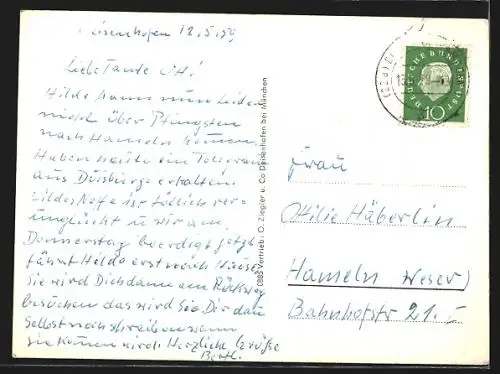 Deisenhofen 12.5.59
Liebe Tante
Hilde kann nun leider
nicht über Pfingsten
nach Hameln kommen
Haben heute ein Telegram
aus Duisburg erhalten.
Hildes Neffe ist tödlich ver-
unglückt u wird am
Donnerstag beerdigt jetzt
fährt Hilde erst nach Hause
Sie wird Dich dann am Rückweg
besuchen das wird Sie Dir dan
Selbst noch schreiben wann
sie kommen wird. Herzliche Grüße
0888 Vertrieb: O. Ziegler u. Co Deisenhofen bei München
DEUTSCHE BUNDESPOST
10
Frau
Ottilie Häberlin
Hameln Weser)
Bahnhofstr 21.-